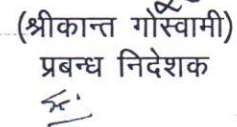 (श्रीकान्त गोस्वामी)
प्रबन्ध निदेशक